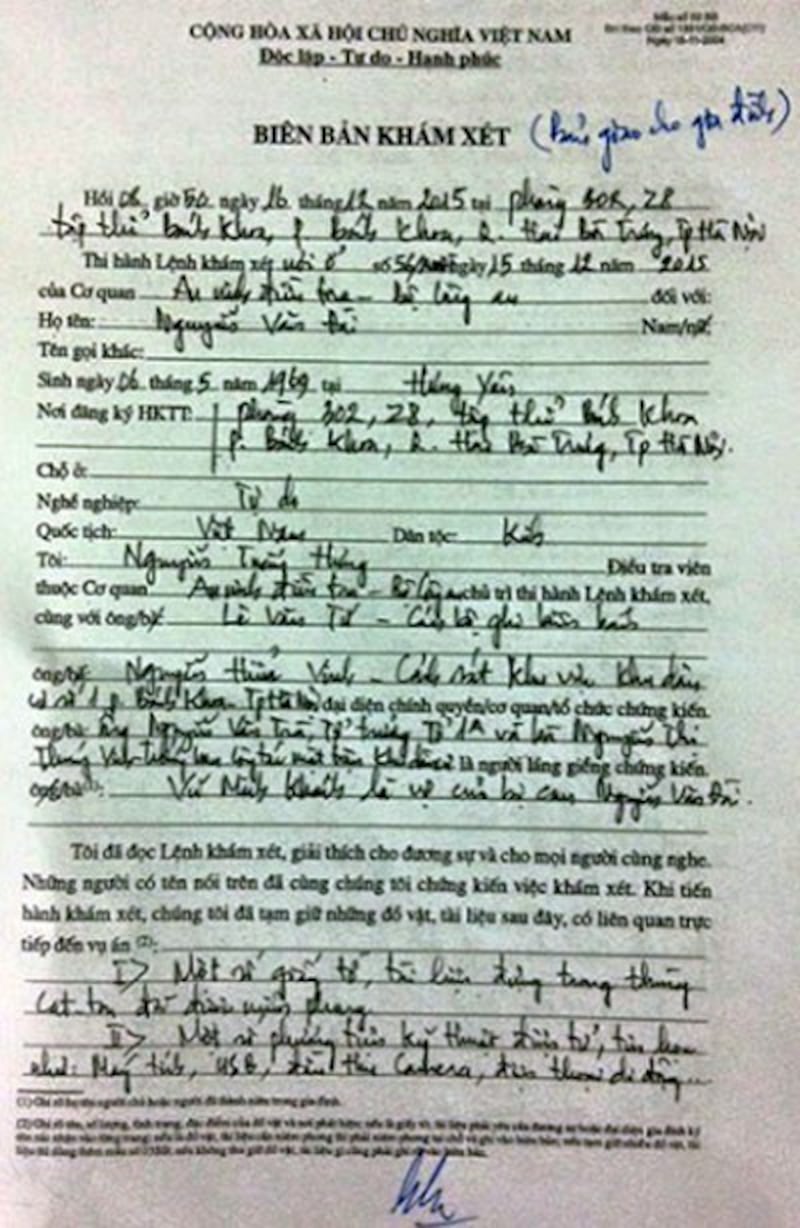 CỘNG HÒA XÃ HỘI CHỦ NGHĨA VIỆT NAM
Độc lập - Tự do - Hạnh phúc
BIÊN BẢN KHÁM XÉT (Bản giao cho gia đình)
Hồi 08 giờ 50 ngày 16 tháng 12 năm 2015 tại phòng 302, Z8
tập thể Bách Khoa, P. Bách Khoa, Q. Hai Bà Trưng, Tp Hà Nội
Thi hành Lệnh khám xét nơi ở số ngày 15 tháng 12 năm 2015
của Cơ quan An ninh điều tra - Bộ Công an đối với:
Họ tên: Nguyễn Văn Đài Nam/nữ:
Tên gọi khác:
Sinh ngày 06 tháng 5 năm 1969 tại Hưng Yên
Nơi đăng ký HKTT: phòng 302, Z8, tập thể Bách Khoa
P. Bách Khoa, Q. Hai Bà Trưng, Tp Hà Nội.
Chỗ ở:
Nghề nghiệp: Tự do
Quốc tịch: Việt Nam Dân tộc: Kinh
Tôi: Nguyễn Trọng Điều tra viên
thuộc Cơ quan An ninh điều tra - Bộ Công an chủ trì thi hành Lệnh khám xét,
cùng với ông/bà Lê Văn Tứ - Cán bộ ghi biên bản
ông/bà Nguyễn Vinh - Cảnh sát khu vực khu dân
cư số 1 P. Bách Khoa - Tp Hà Nội đại diện chính quyền/cơ quan/tổ chức chứng kiến.
ông/bà: ông Nguyễn Văn Trà, Tổ trưởng Tổ 1A và bà Nguyễn Thị
công tác mặt trận Khu dân cư là người láng giềng chứng kiến.
ông/bà(1): Vũ Minh Khánh là vợ của bị can Nguyễn Văn Đài.
Tôi đã đọc Lệnh khám xét, giải thích cho đương sự và cho mọi người cùng nghe.
Những người có tên nói trên đã cùng chúng tôi chứng kiến việc khám xét. Khi tiến
hành khám xét, chúng tôi đã tạm giữ những đồ vật, tài liệu sau đây, có liên quan trực
tiếp đến vụ án (2):
I> Một số giấy tờ, tài liệu đựng trong thùng
cat-ton đã được niêm phong
II> Một số phương tiện kỹ thuật điện tử, tin học
như: Máy tính, USB, đầu thu Camera, điện thoại di động...
(1) Ghi rõ họ tên người chủ hoặc người đã thành niên trong gia đình.